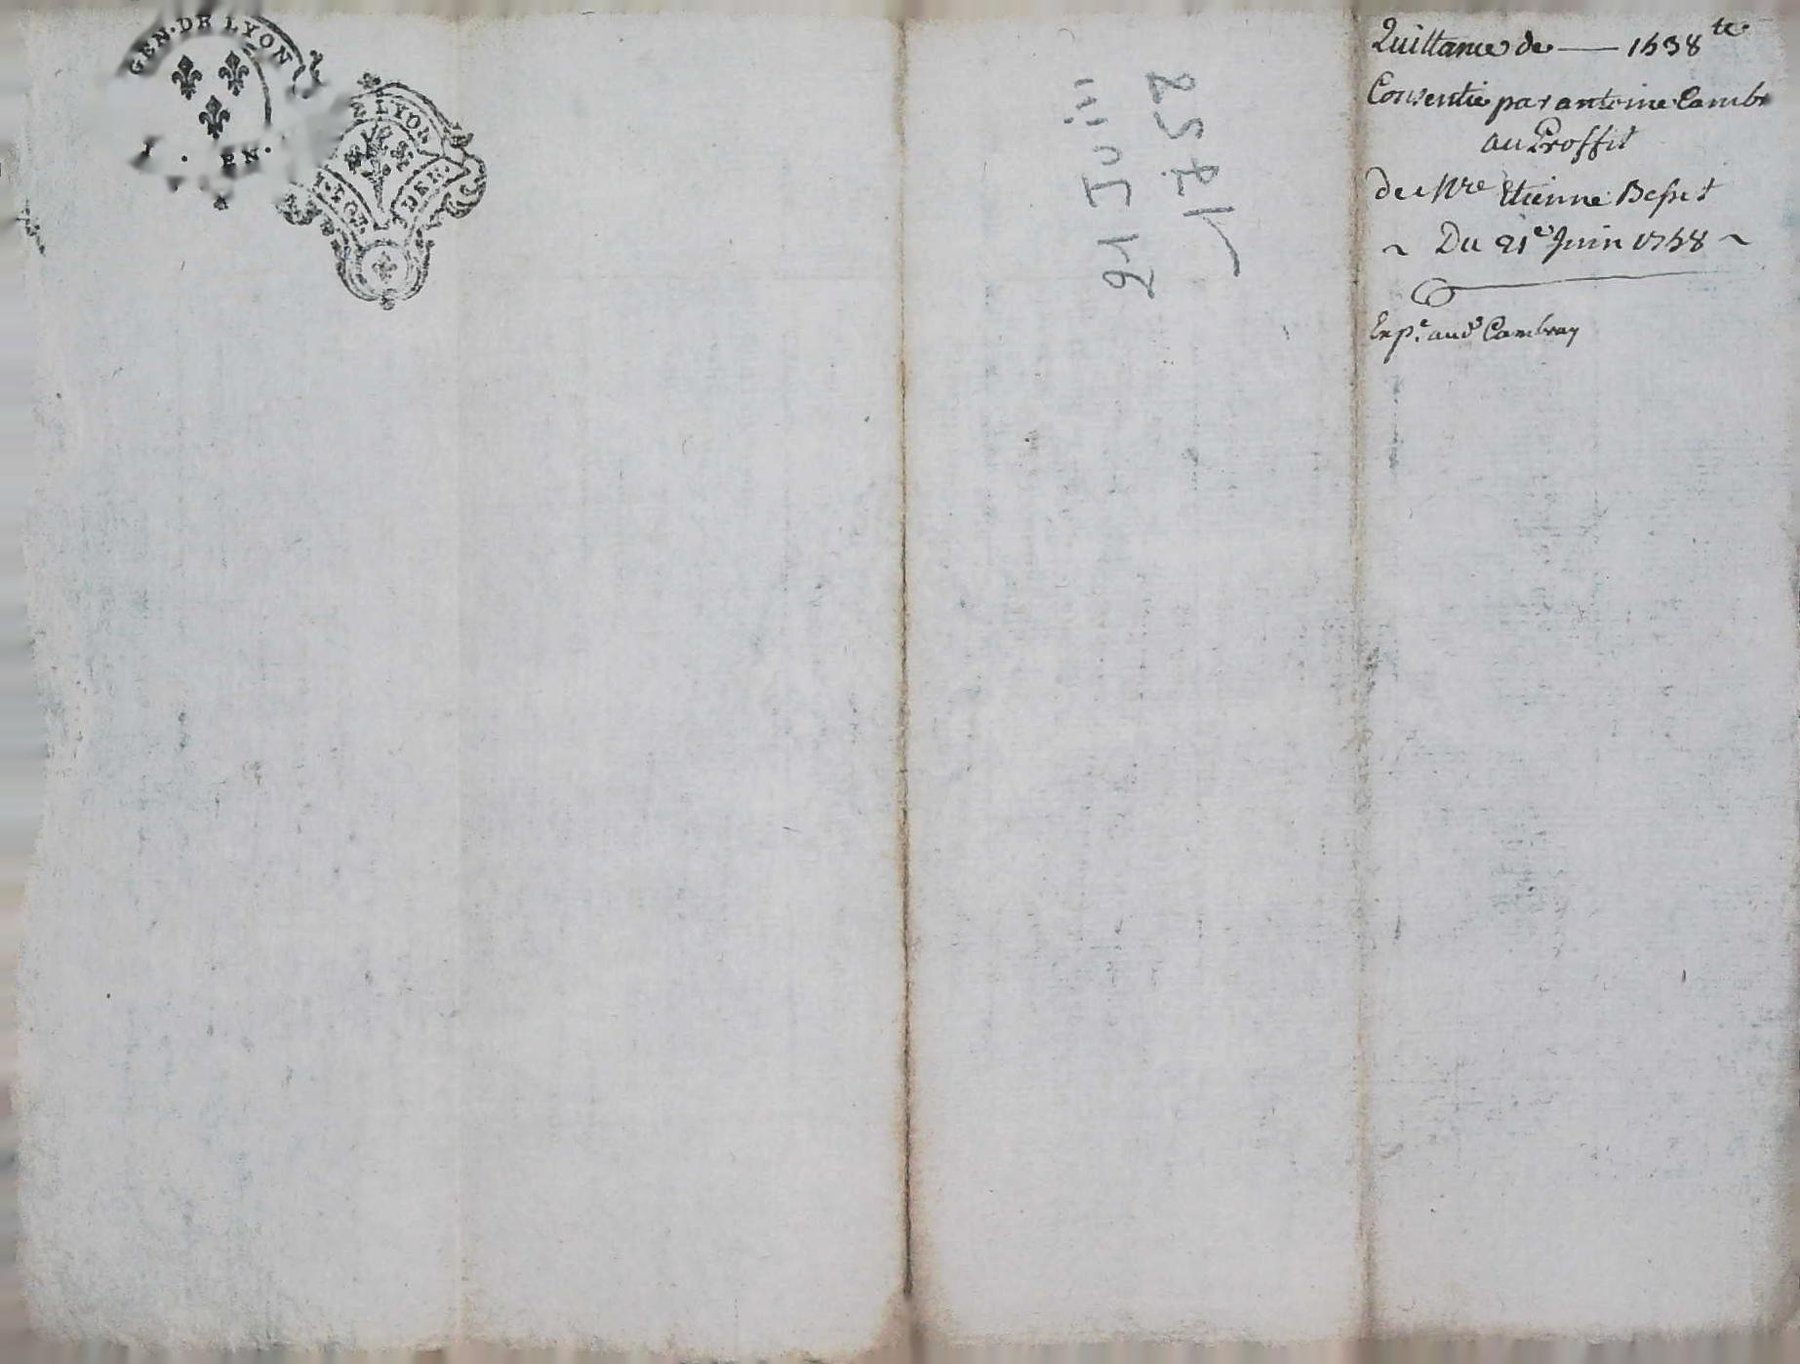 GEN·DE LYON
EN·
LYON
Quittance de — 1538ᵗᵗ
Consentie par antoine Cambr
au Proffit
de Mre Etienne Besset
~ Du 21e Juin 1758 ~
Expe. aud Cambray